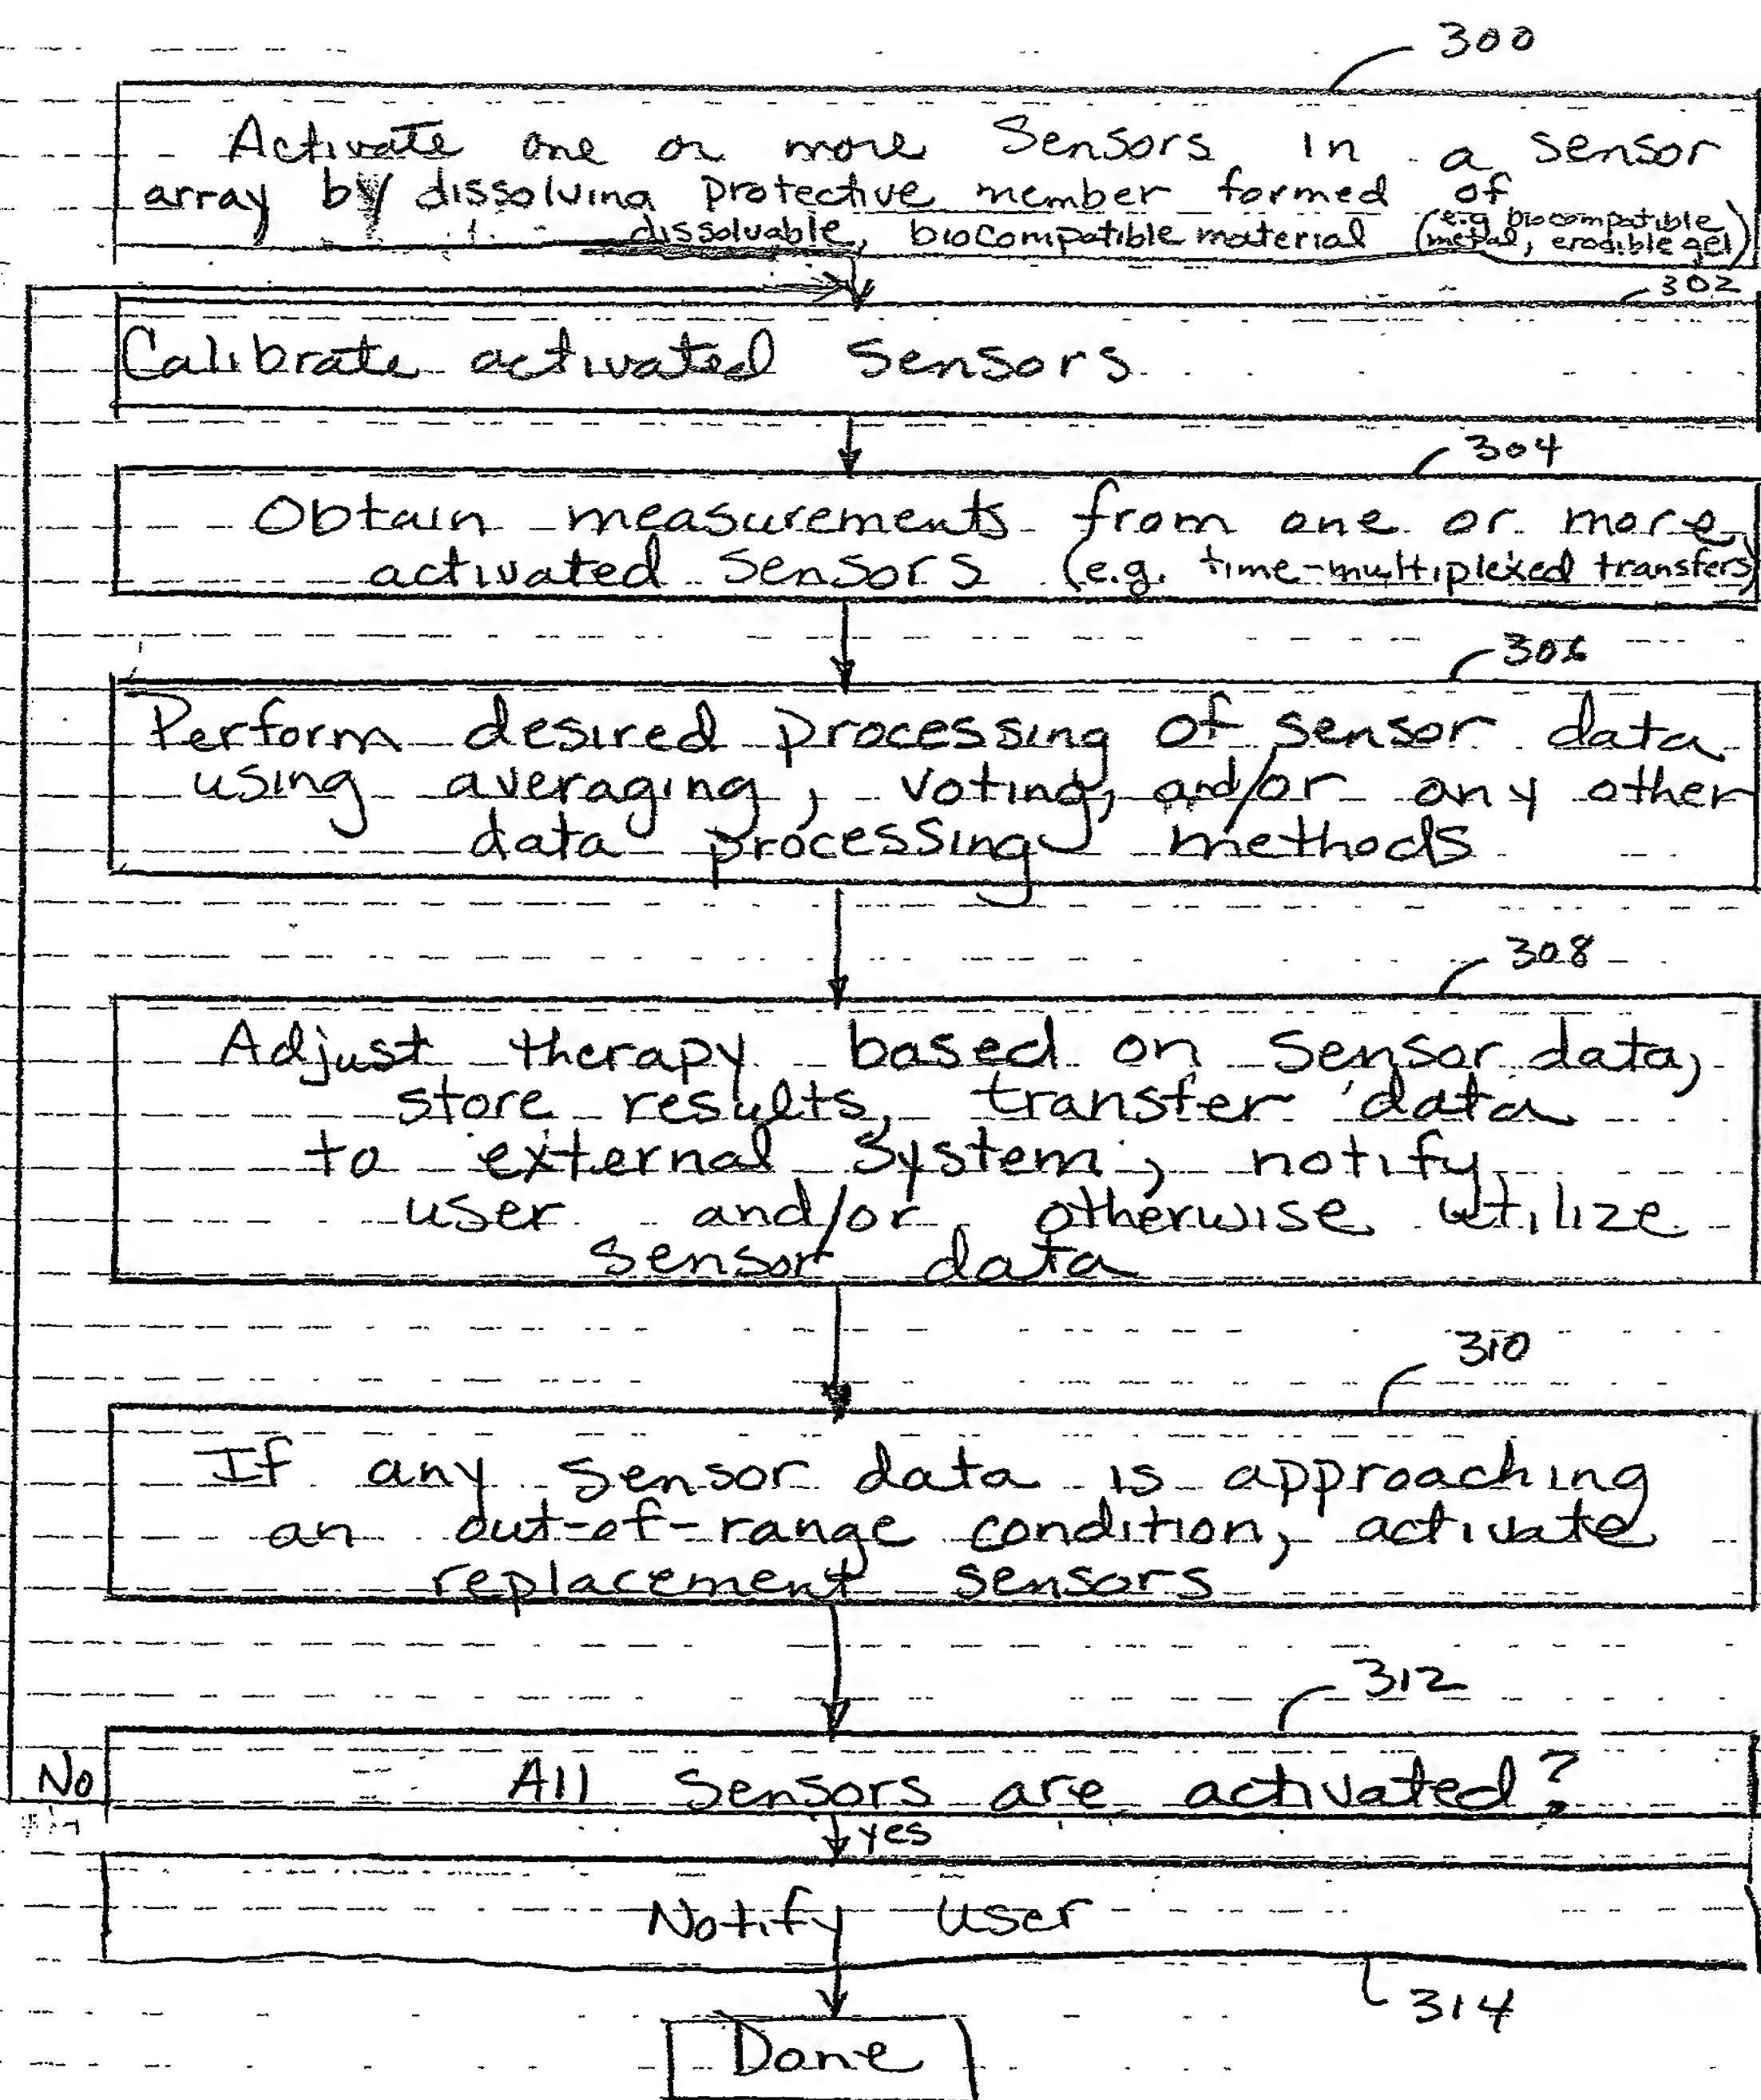 300
Activate one or more Sensors in a sensor
array by dissolving protective member formed of
dissolvable, biocompatible material (e.g. biocompatible
metal, erodible gel)
302
Calibrate activated sensors
304
Obtain measurements from one or more
activated sensors (e.g. time-multiplexed transfers)
306
Perform desired processing of sensor data
using averaging, voting, and/or any other
data processing methods
308
Adjust therapy based on sensor data,
store results, transfer data
to external system, notify
user and/or otherwise utilize
sensor data
310
If any sensor data is approaching
an out-of-range condition, activate
replacement sensors
312
No
All sensors are activated?
yes
Notify user
314
Done